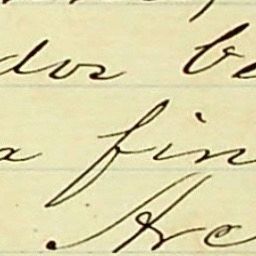 dos be
a fin
Are